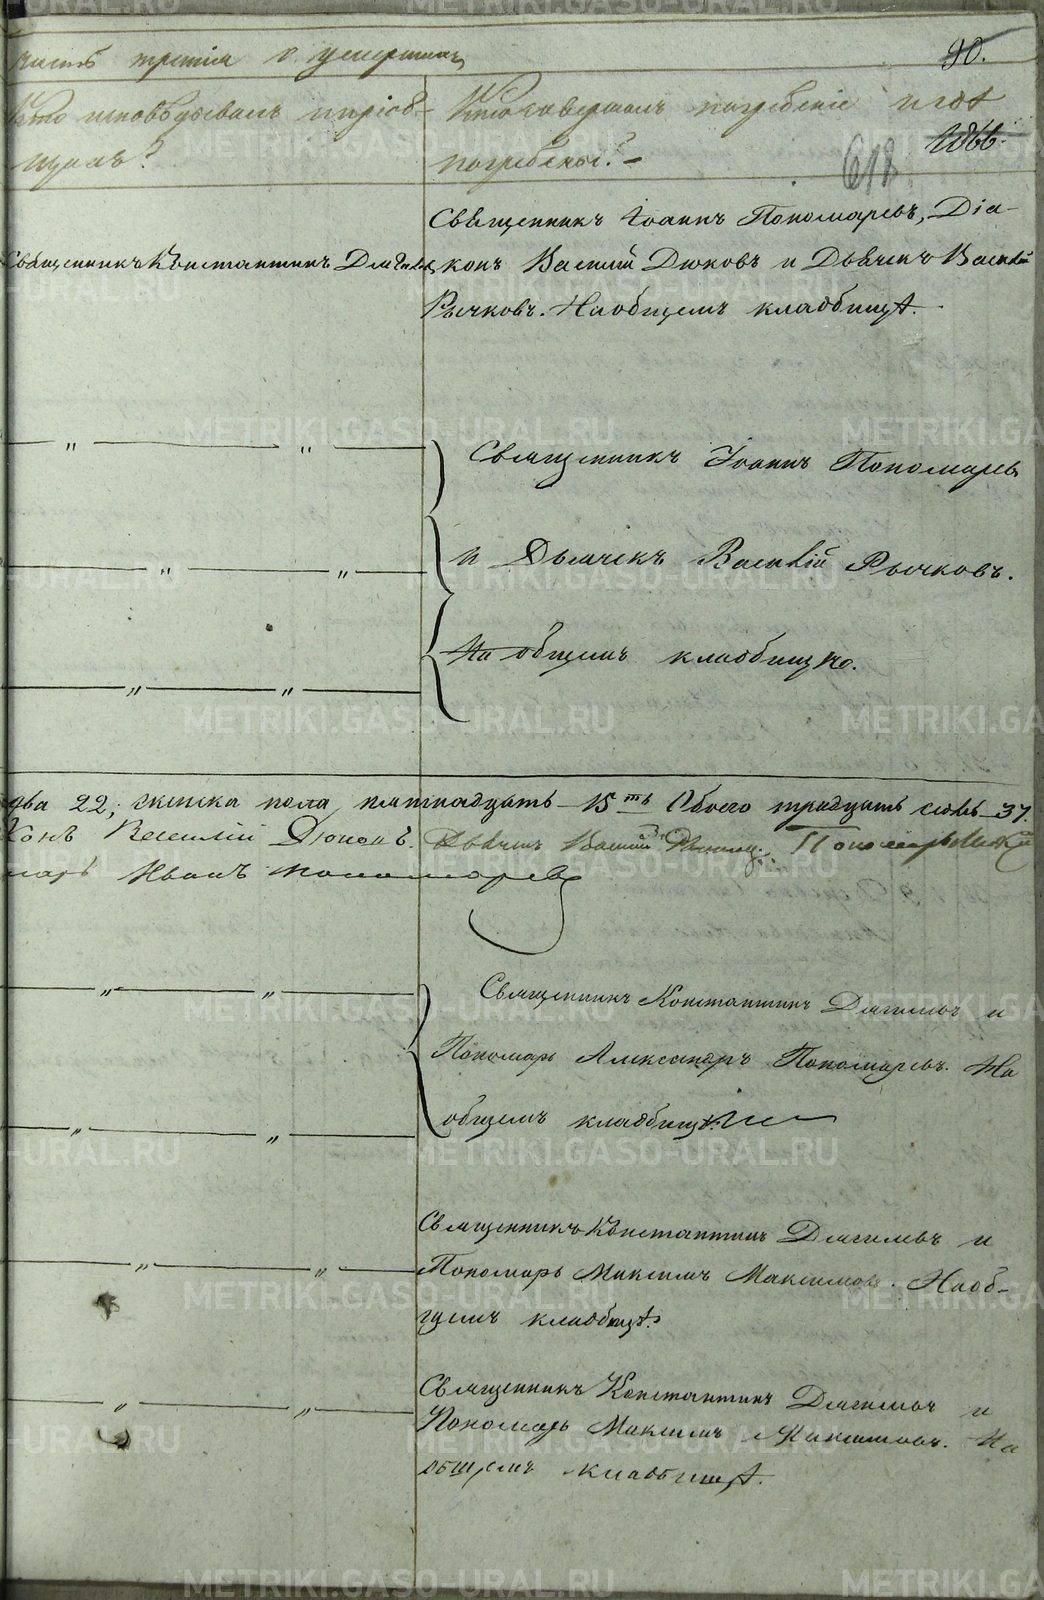 часть третія о умершихъ
90.
Кто исповѣдывалъ и пріоб-
щалъ?
Кто совершалъ погребеніе и гдѣ
погребены?
1866.
618
Священникъ Іоаннъ Пономаревъ, Діа-
Священникъ Константинъ Дягилевъ,
конъ Василій Дюковъ и Дьячекъ Василій
Рычковъ. На общемъ кладбищѣ.
— „ — „ —
Священникъ Іоаннъ Пономаревъ
— „ — „ —
и Дьячекъ Василій Рычковъ.
На общемъ кладбищѣ.
— „ — „ —
два 22, женска пола пятнадцать 15ть Обоего тридцать семь 37.
конъ Василій Дюковъ. Дьячекъ Василій Рычковъ. Пономарь
марь Иванъ Пономаревъ
— „ — „ —
Священникъ Константинъ Дягилевъ и
Пономарь Александръ Пономаревъ. На
общемъ кладбищѣ.
— „ — „ —
Священникъ Константинъ Дягилевъ и
— „ — „ —
Пономарь Максимъ Максимовъ. На об-
щемъ кладбищѣ.
Священникъ Константинъ Дягилевъ и
— „ — „ —
Пономарь Максимъ Максимовъ. На
общемъ кладбищѣ.
METRIKI.GASO-URAL.RU